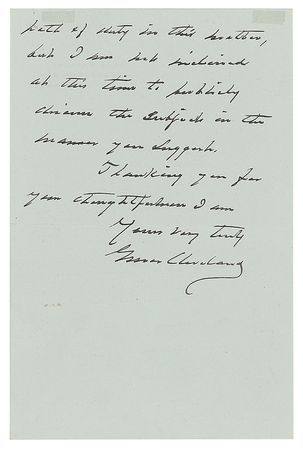 path of duty in this matter,
but I am not inclined
at this time to publicly
discuss the subject in the
manner you suggest.
Thanking you for
your thoughtfulness I am
Yours very truly
Grover Cleveland